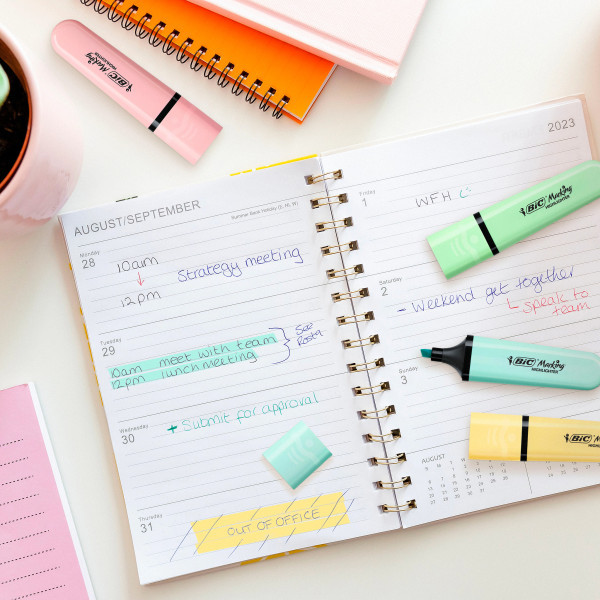 BiC Marking
HIGHLIGHTER
2023
AUGUST/SEPTEMBER
Summer Bank Holiday (E, NI, W)
Monday
28
10am
Strategy meeting
12pm
Tuesday
29
10am meet with team
12pm lunch meeting
See
Rosta
Wednesday
30
+ Submit for approval
Thursday
31
OUT OF OFFICE
Friday
1
WFH
BiC Marking
HIGHLIGHTER
Saturday
2
- Weekend get together
speak to
team
Sunday
3
BiC Marking
HIGHLIGHTER
BiC Marking
HIGHLIGHTER
AUGUST